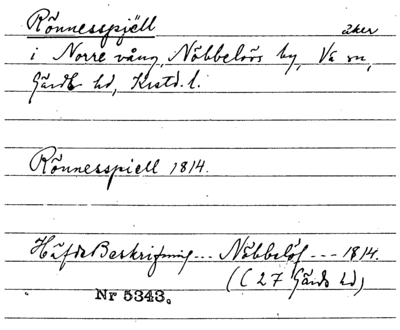 Rönnesspjëll åker
i Norre vång, Nöbbelövs by, Va sn,
Gärds hd, Krstd. l.
Rönnesspiell 1814.
Häfde Beskrifning --- Nöbbelöf --- 1814.
(C 27 Gärds hd)
Nr 5343.